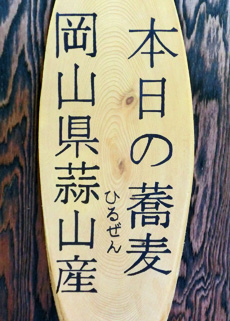 本日の蕎麦
岡山県蒜山産
ひるぜん